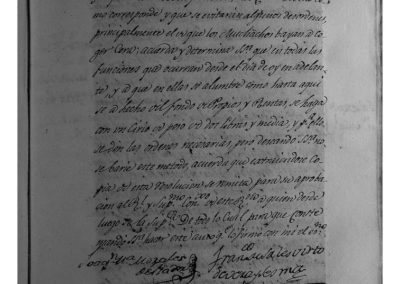 mo corresponde, y que se evitarán algunos desordenes,
principalmente el de que los Muchachos bayan á co
ger Cera; acuerda y determina S.ría que en todas las
funciones que ocurran desde el dia de oy en adelan
te, y á que en ellas se alumbre como hasta aqui
se á hecho del fondo de Propios y Rentas, se haga
con un Cirio de peso de dos libras y media, y p.a ello
se dén las ordenes necesarias, pero deseando S.ría no
se barie este metodo, acuerda que extraiendose co
pia de esta Resolucion se remita para su aproba
cion al y Sup.mo Con. á quien desde
luego se la Sup.ca de todo lo Cual para que Conste
mandó S.ría hacer este auto q.e lo firmo con mi el